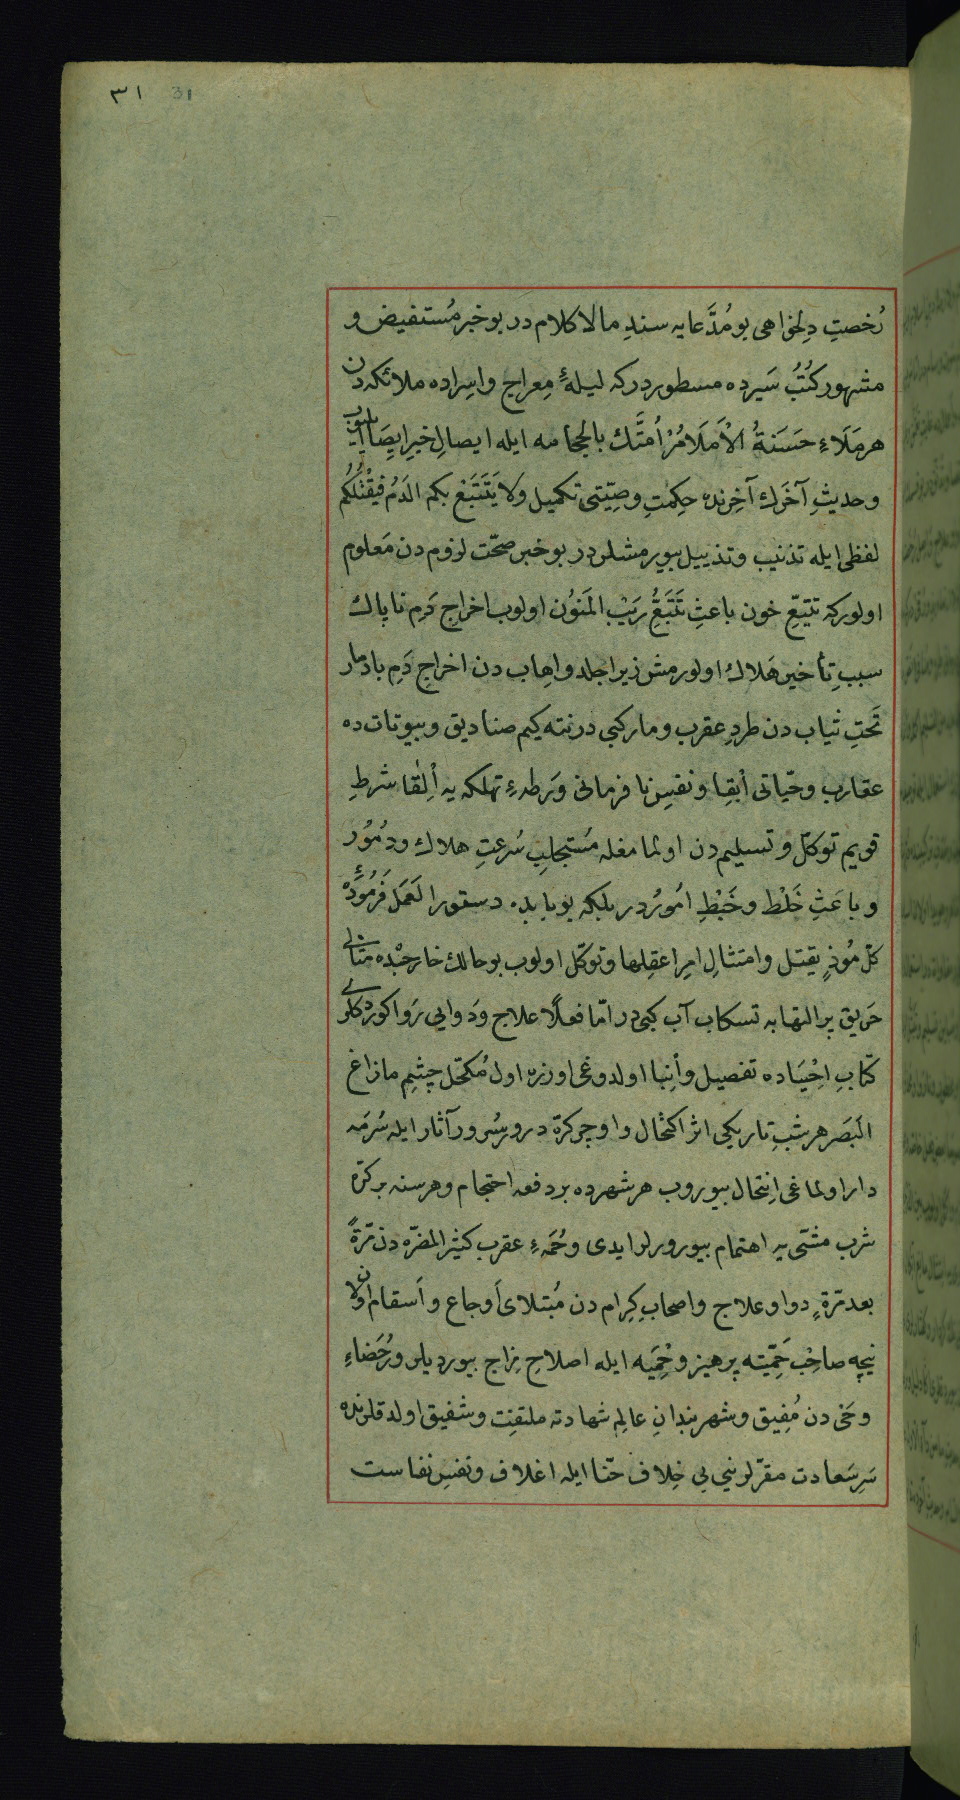 ٣١ 31
رُخصتِ دِلخواهی بو مُدَّعایه سندِ مالا کلام در بو خبر مُستفیض و
مشهور کُتُبُ سَیرده مسطور در که لیلهٔ مِعراج واسراده ملائکه دن
هر مَلَاءِ حَسَنةُ الْاَملَا مُرْ اُمتَّكَ بالحِجامه ایله ایصالِ خیر ایصا
وحدیثِ آخَرك آخِرنده حِکمتِ وصِیّتی تکمیل ولا یَتَبَیَّغ بکم الدَمُ فیَقْتُلُکُم
لفظی ایله تذنیب وتذییل بیورمشلر در بو خبر صحّت لزوم دن مَعلوم
اولور که تبَیّغِ خون باعثِ تَبَیُّغِ رَیْب المَنوُن اولوب اخراجِ دَمِ ناپاك
سببِ تأخیر هَلاك اولورمش زیرا جلد واهاب دن اخراجِ دَمِ بادمار
تَحتِ ثیاب دن طردِ عقرب ومار کبی در نته کیم صنادیق وبیوتات ده
عقارب وحیّاتی اَبقا ونفسِ نافرمانی وَرطهٔ تهلکه یه اِلقا شرطِ
قویم توکّل وتسلیم دن اولمامغله مُستجلبِ سُرعتِ هلاك ودُمُور
وباعثِ خَلْط وخَبْطِ امُورُدر بلکه بو بابده دستور العَمَل فَرمُودهٔ
کلّ مُوذٍ یقتل وامتثالِ امرِ اعقِلها وتوکّل اولوب بو حالك خارجْده مثالی
حَریق پر التهابه تسکاب آب کبی در امّا فعلًا علاج ودَوایی رَوا کوردکلری
کتابِ اِحْیَاده تفصیل وأنبا اولدوغی اوزره اول مُکحّل چشمِ مازاغ
البَصَر هر شبِ تاریکی اثر اکتحال واوچر کرّه درور سُرور آثار ایله سُرمَه
دار اولماغی اِنتحال بیوروب هر شهرده بر دفعه احتجام وهر سنه بر کرّه
شرب مشّی یه اهتمام بیوررلر ایدی وحُمَهٔ عقرب کثیر المضرّه دن مرّةً
بعد مرّةٍ دوا وعلاج واصحابِ کِرام دن مُبتلای أوجاع وأسقام اولان
نیچه صاحْب حَمِیّته پرهیز وحِمْیَه ایله اصلاحِ مِزاج بیوردیلر ورُحَضاءِ
وحی دن مُفیق وشهربندانِ عالم شهادته ملتفِت وشفیق اولدقلرنده
سَرِ سَعادت مقرّلرینی بی خِلاف حنّا ایله اغلاف ونفسِ نفاست